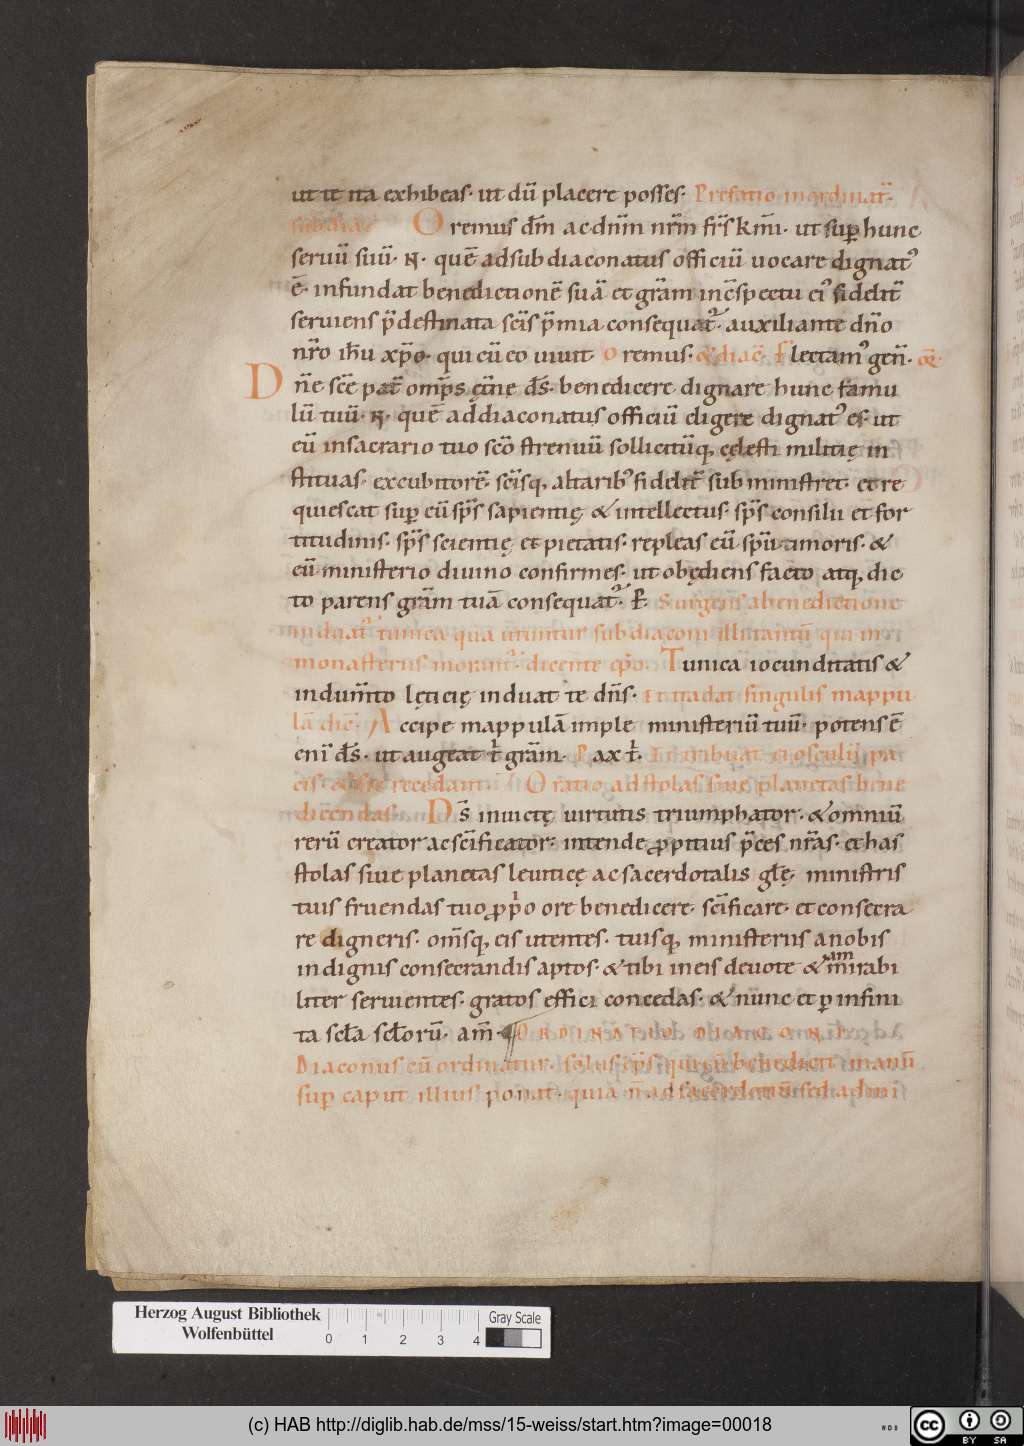 ut te ita exhibeas· ut dū placere posses· Prefatio in ordinat̄·
subdiac̄ Oremus dm̄ ac dn̄m nr̄m fr̄s km̄i· ut sup hunc
seruū suū· N· quē ad subdiaconatus officiū uocare dignatꝰ
ē· infundat benedictionē suā et gr̄am in c̄spectu eiꝰ fidelit̄
seruiens p̄destinata sc̄is p̄mia consequat̄· auxiliante dn̄o
nr̄o ih̄u xp̄o· qui cū eo uiuit Oremus· & diac̄· flectamꝰ gen̄· &
Dn̄e sc̄e pat̄ omp̄s ęt̄ne d̄s· benedicere dignare hunc famu
lū tuū· N· quē ad diaconatus officiū eligere dignatꝰ es· ut
eū in sacrario tuo sc̄o strenuū sollicitūq, cęlesti militię in
stituas· excubitorē· sc̄isq, altaribꝰ fidelit̄ subministret· et re
quiescat sup eū sp̄s sapientię & intellectus· sp̄s consilii et for
titudinis· sp̄s scientię et pietatis· repleas eū sp̄ū timoris· &
eū ministerio diuino confirmes· ut obędiens facto atq, dic
to parens gr̄am tuā consequat̄· P̄ Surgens a benedictione
induat̄ tunica qua utuntur subdiaconi illi tantū qui in
monasteriis morant̄· dicente ep̄o· Tunica iocunditatis &
indum̄to lęticię induat te dn̄s· Et tradat singulis mappu
lā dic̄· Accipe mappulā imple ministeriū tuū· potens ē
eni d̄s· ut augeat t̄ gr̄am· Pax t̄· Et tribuat ei osculū pa
cis· & sic recedant· Oratio ad stolas siue planetas bene
dicendas· D̄s inuictę uirtutis triumphator· & omniū
rerū creator ac sc̄ificator· intende ꝓpitius p̄ces nr̄as· et has
stolas siue planetas leuiticę ac sacerdotalis gl̄ę· ministris
tuis fruendas tuo ꝓp̄o ore benedicere· sc̄ificare· et consecra
re digneris· om̄sq, eis utentes· tuisq, ministeriis a nobis
indignis consecrandis aptos· & tibi in eis deuote & am̄irabi
liter seruientes· gratos effici concedas· & nunc et p infini
ta scl̄a scl̄orū· am̄· ORDINATIO DIACONI
Diaconus cū ordinatur· solus ep̄s qui eū benedicit· manū
sup caput illius ponat· quia n̄ ad sacerdotiū sed ad mi
Herzog August Bibliothek
Wolfenbüttel
0 1 2 3 4
Gray Scale
(c) HAB http://diglib.hab.de/mss/15-weiss/start.htm?image=00018
WDB
cc BY SA